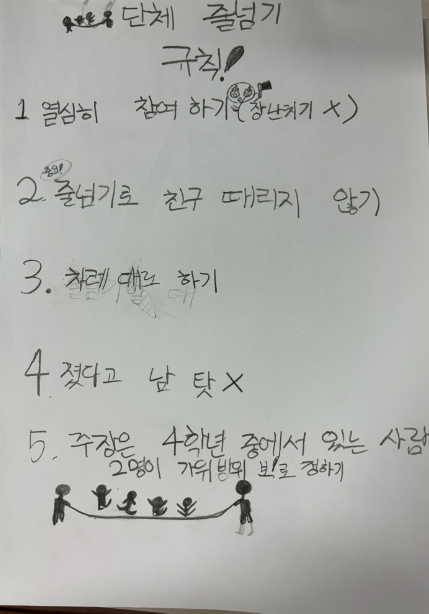 단체 줄넘기
규칙!
1 열심히 참여 하기(장난치기 X)
2. 줄넘기로 친구 때리지 않기
3. 차례 대로 하기
4. 졌다고 남 탓 X
5. 주장은 4학년 중에서 있는 사람
2명이 가위 바위 보!로 정하기